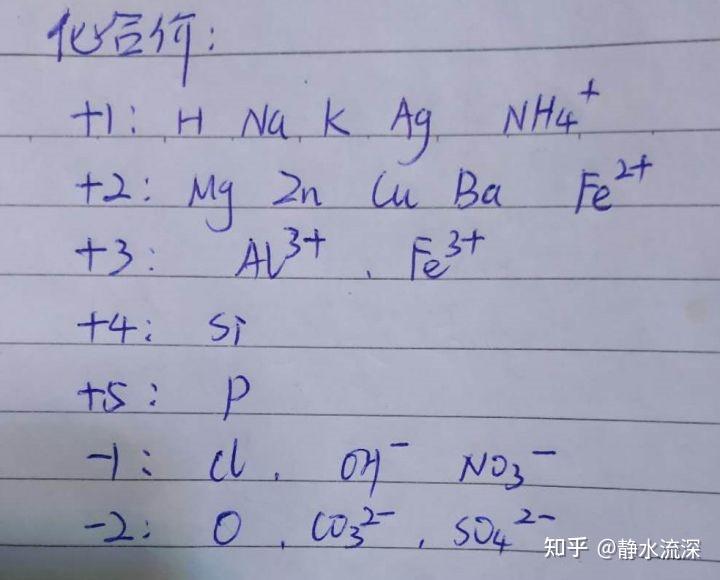 化合价:
+1: H Na K Ag NH4⁺
+2: Mg Zn Cu Ba Fe²⁺
+3: Al³⁺ . Fe³⁺
+4: Si
+5: P
-1: Cl . OH⁻ NO₃⁻
-2: O . CO₃²⁻ . SO₄²⁻
知乎 @静水流深